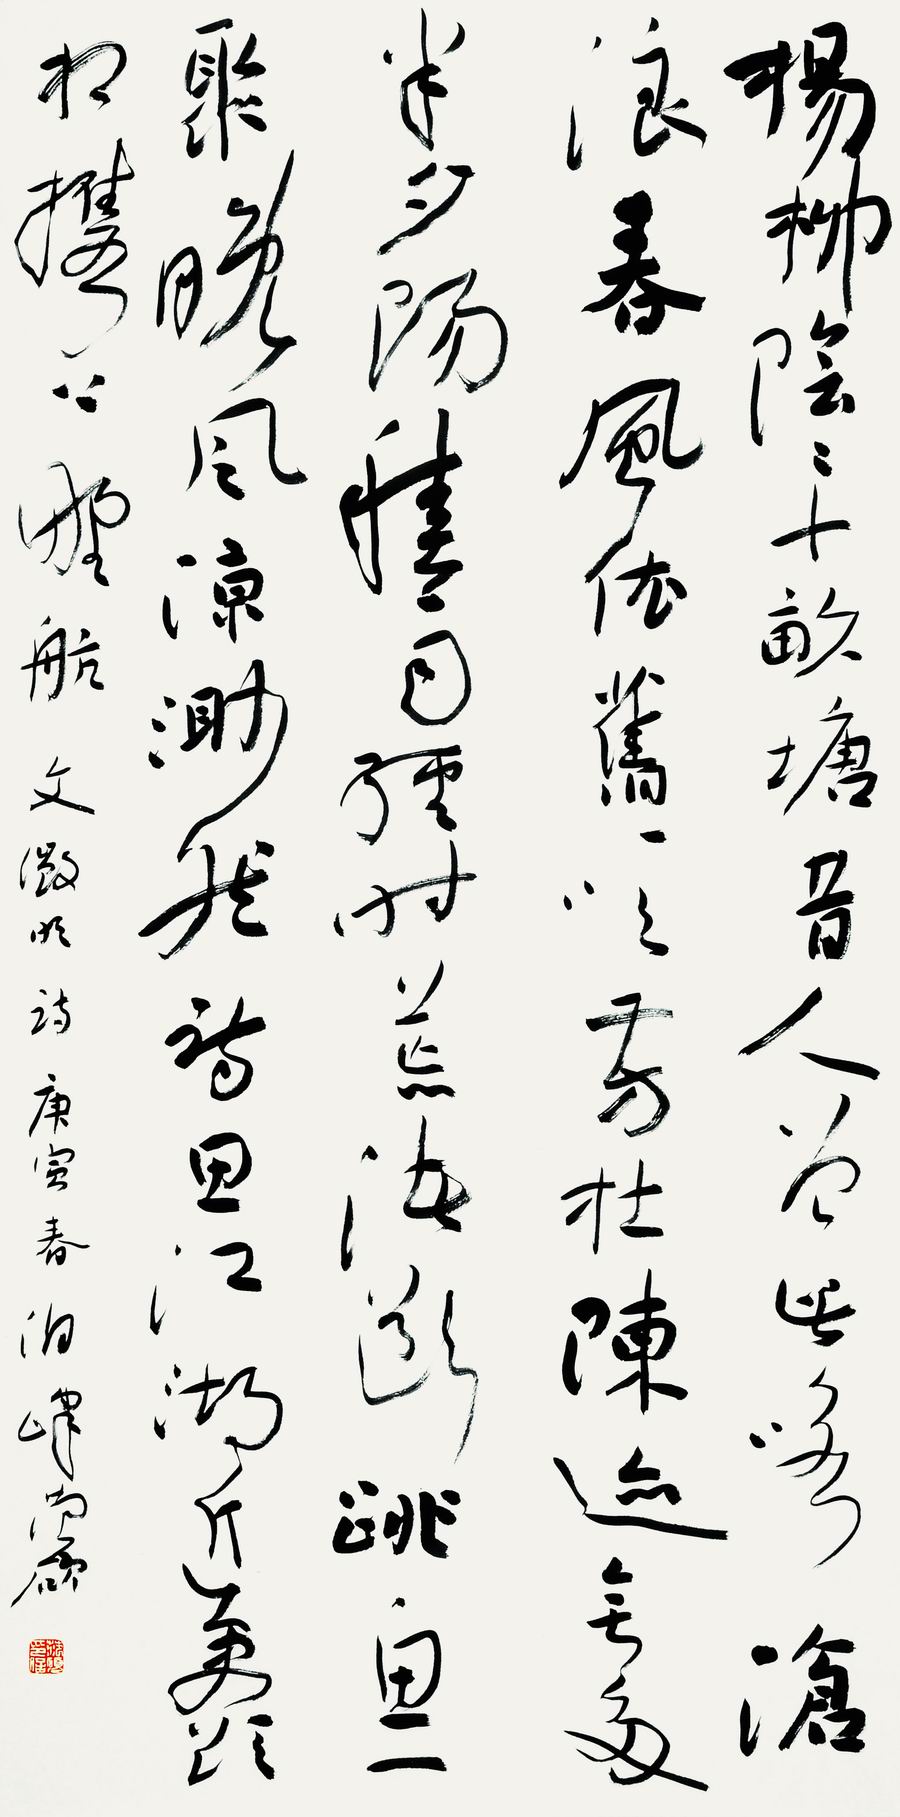 楊柳陰〻十畝塘昔人曾此咏滄
浪春風依舊吹芳杜陳迹無多
半夕陽積雨經時荒渚斷跳魚一
聚晚風涼渺然詩思江湖近便欲
相攜上野航 文徵明詩 庚寅春